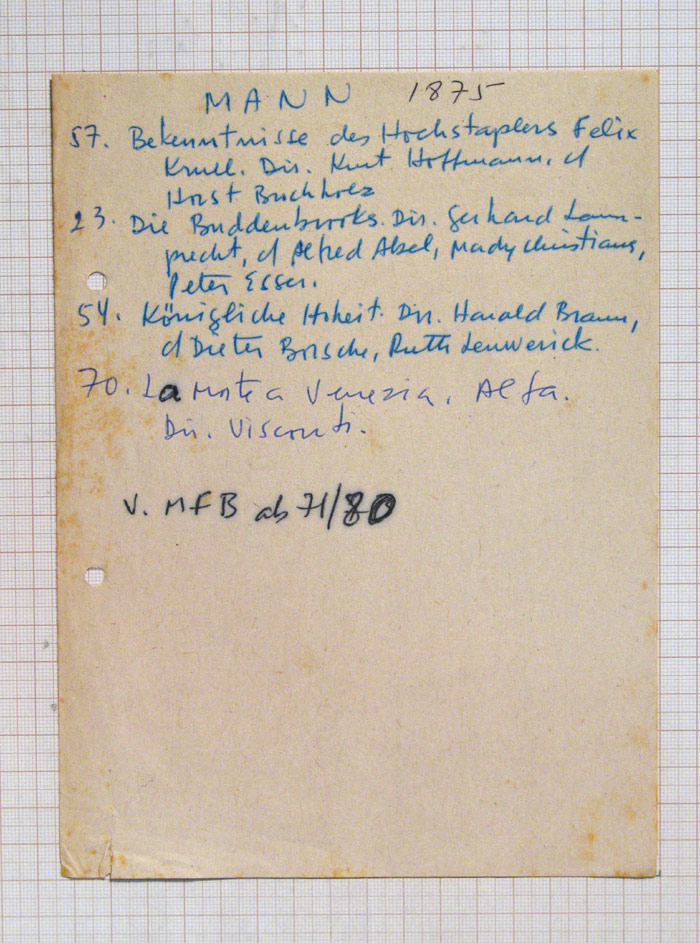 MANN 1875
57. Bekenntnisse des Hochstaplers Felix
Krull. Dir. Kurt Hoffmann, d
Horst Buchholz
23. Die Buddenbrooks. Dir. Gerhard Lam-
precht, d Alfred Abel, Mady Christians,
Peter Esser.
54. Königliche Hoheit. Dir. Harald Braun,
d Dieter Borsche, Ruth Leuwerick.
70. La Morte a Venezia, Alfa.
Dir. Visconti.
V. MFB ab 71/80